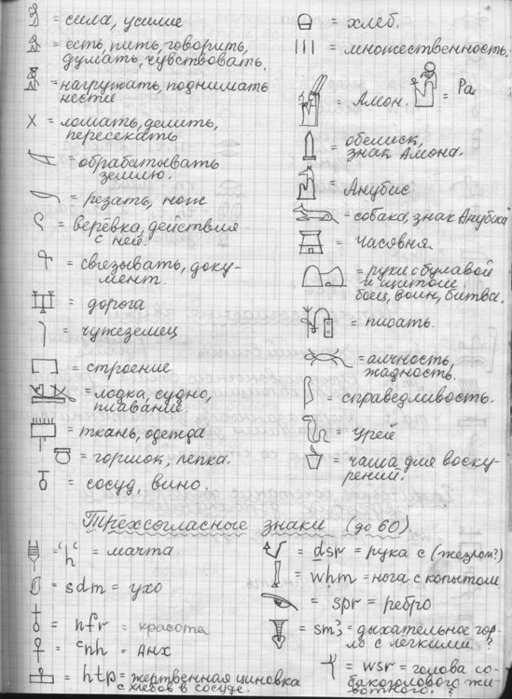 = сила, усилие
= есть, пить, говорить,
думать, чувствовать.
= нагружать, поднимать
нести
= ломать, делить,
пересекать
= обрабатывать
землю.
= резать, нож
= верёвка, действия
с ней.
= связывать, доку-
мент.
= дорога
= чужеземец
= строение
= лодка, судно,
плавание.
= ткань, одежда
= горшок, лепка.
= сосуд, вино.
= хлеб.
= множественность.
= Амон.
= Ра
= обелиск,
знак Амона.
= Анубис
= собака, знак Анубиса
= часовня.
= руки с булавой
и щитом.
боец, воин, битва.
= писать.
= алчность,
жадность.
= справедливость.
= урей
= чаша для воску-
рений.
Трёхсогласные знаки (до 60).
= 'ḥ' = мачта
= sdm = ухо
= nfr = красота
= ʿnh = Анх
= htp = жертвенная циновка
с хлебом в сосуде.
= dsr = рука с (жезлом?)
= whm = нога с копытом
= spr = ребро
= smȝ = дыхательное гор-
ло с легкими. ?
= wsr = голова со-
бакоголового жи-
вотного.